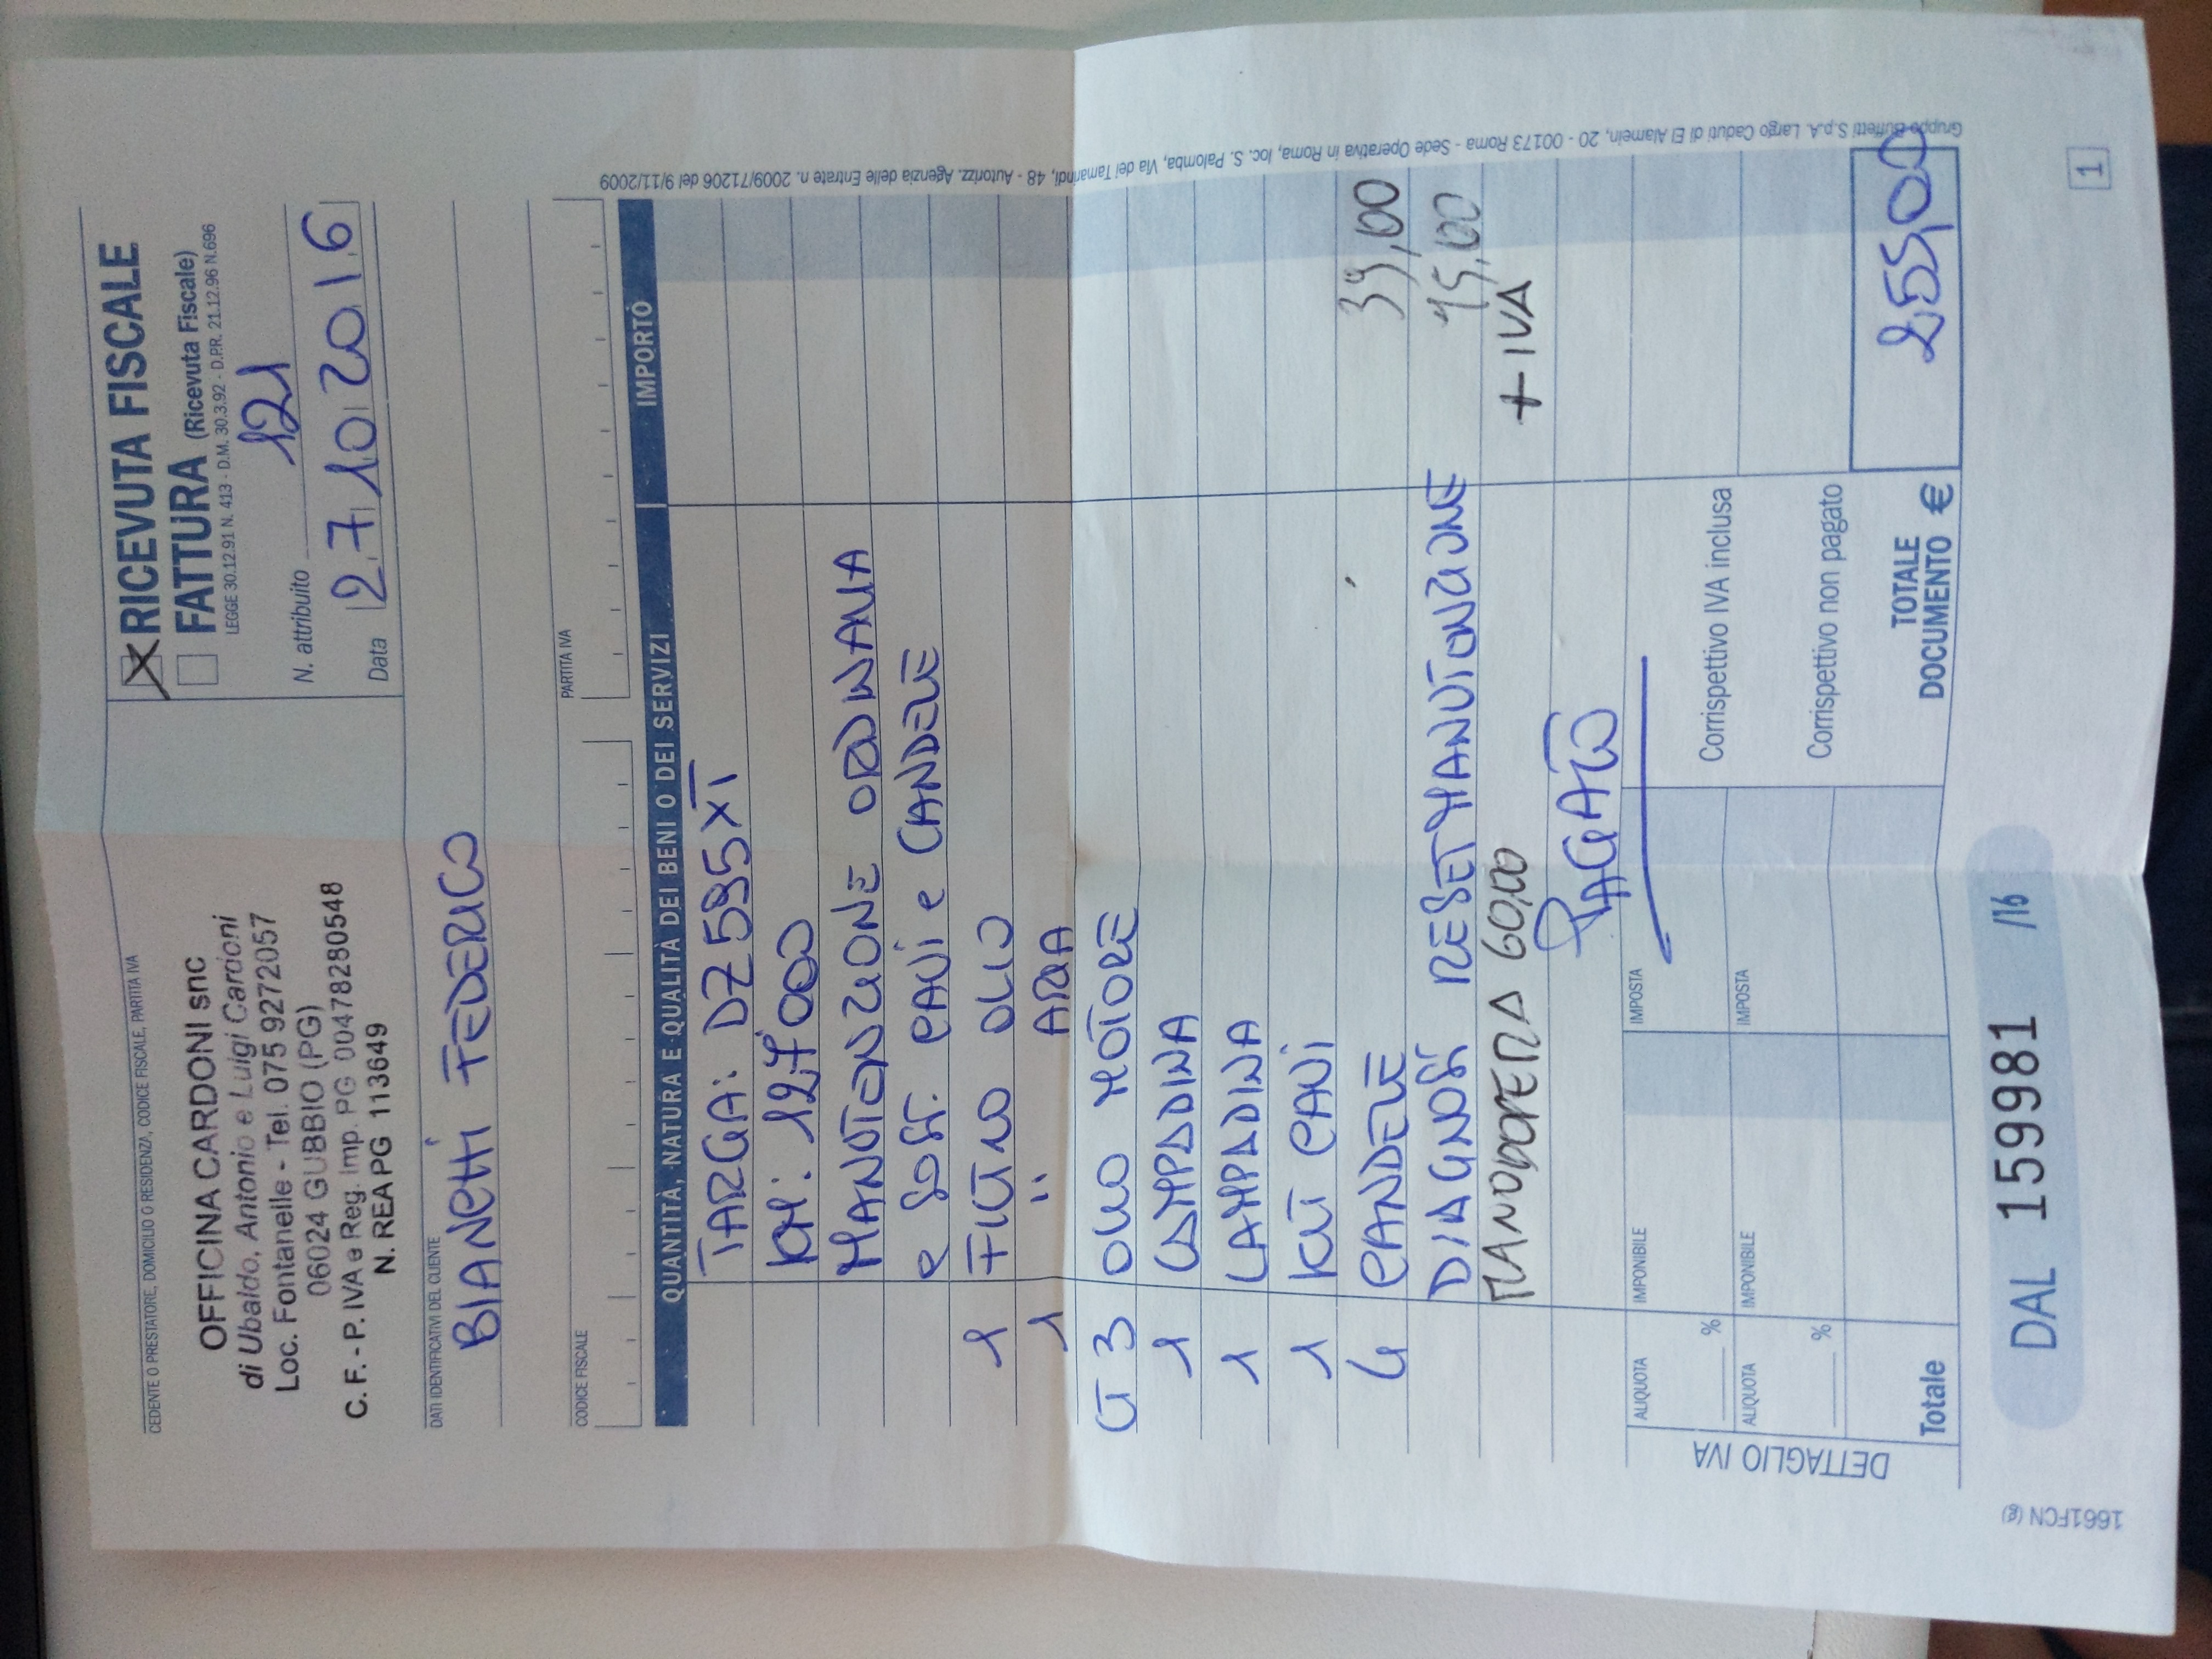 CEDENTE O PRESTATORE, DOMICILIO O RESIDENZA, CODICE FISCALE, PARTITA IVA
OFFICINA CARDONI snc
di Ubaldo, Antonio e Luigi Cardoni
Loc. Fontanelle - Tel. 075 9272057
06024 GUBBIO (PG)
C. F. - P. IVA e Reg. Imp. PG 00478280548
N. REA PG 113649
RICEVUTA FISCALE
FATTURA (Ricevuta Fiscale)
LEGGE 30.12.91 N. 413 - D.M. 30.3.92 - D.P.R. 21.12.96 N.696
N. attribuito 121
Data 27 10 2016
DATI IDENTIFICATIVI DEL CLIENTE
BIANCHI FEDERICO
CODICE FISCALE
PARTITA IVA
QUANTITÀ, NATURA E QUALITÀ DEI BENI O DEI SERVIZI IMPORTO
TARGA: DZ595XT
KM: 127000
MANUTENZIONE ORDINARIA
e SOST. CAVI e CANDELE
1 FILTRO OLIO
1 " ARIA
LT 3 OLIO MOTORE
1 LAMPADINA
1 LAMPADINA
1 KIT CAVI
4 CANDELE 39,00
DIAGNOSI RESET MANUTENZIONE 15,00
MANODOPERA 60,00 + IVA
PAGATO
DETTAGLIO IVA
ALIQUOTA IMPONIBILE IMPOSTA
%
Corrispettivo IVA inclusa
ALIQUOTA IMPONIBILE IMPOSTA
%
Corrispettivo non pagato
Totale
TOTALE
DOCUMENTO € 255,00
DAL 159981 /16
1661FCN (g)
1
Gruppo Buffetti S.p.A. Largo Caduti di El Alamein, 20 - 00173 Roma - Sede Operativa in Roma, loc. S. Palomba, Via dei Tamarindi, 48 - Autorizz. Agenzia delle Entrate n. 2009/71206 del 9/11/2009